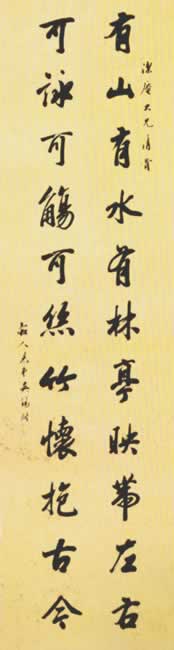 有山有水有林亭映帶左右
大兄
可詠可觴可絲竹懷抱古今